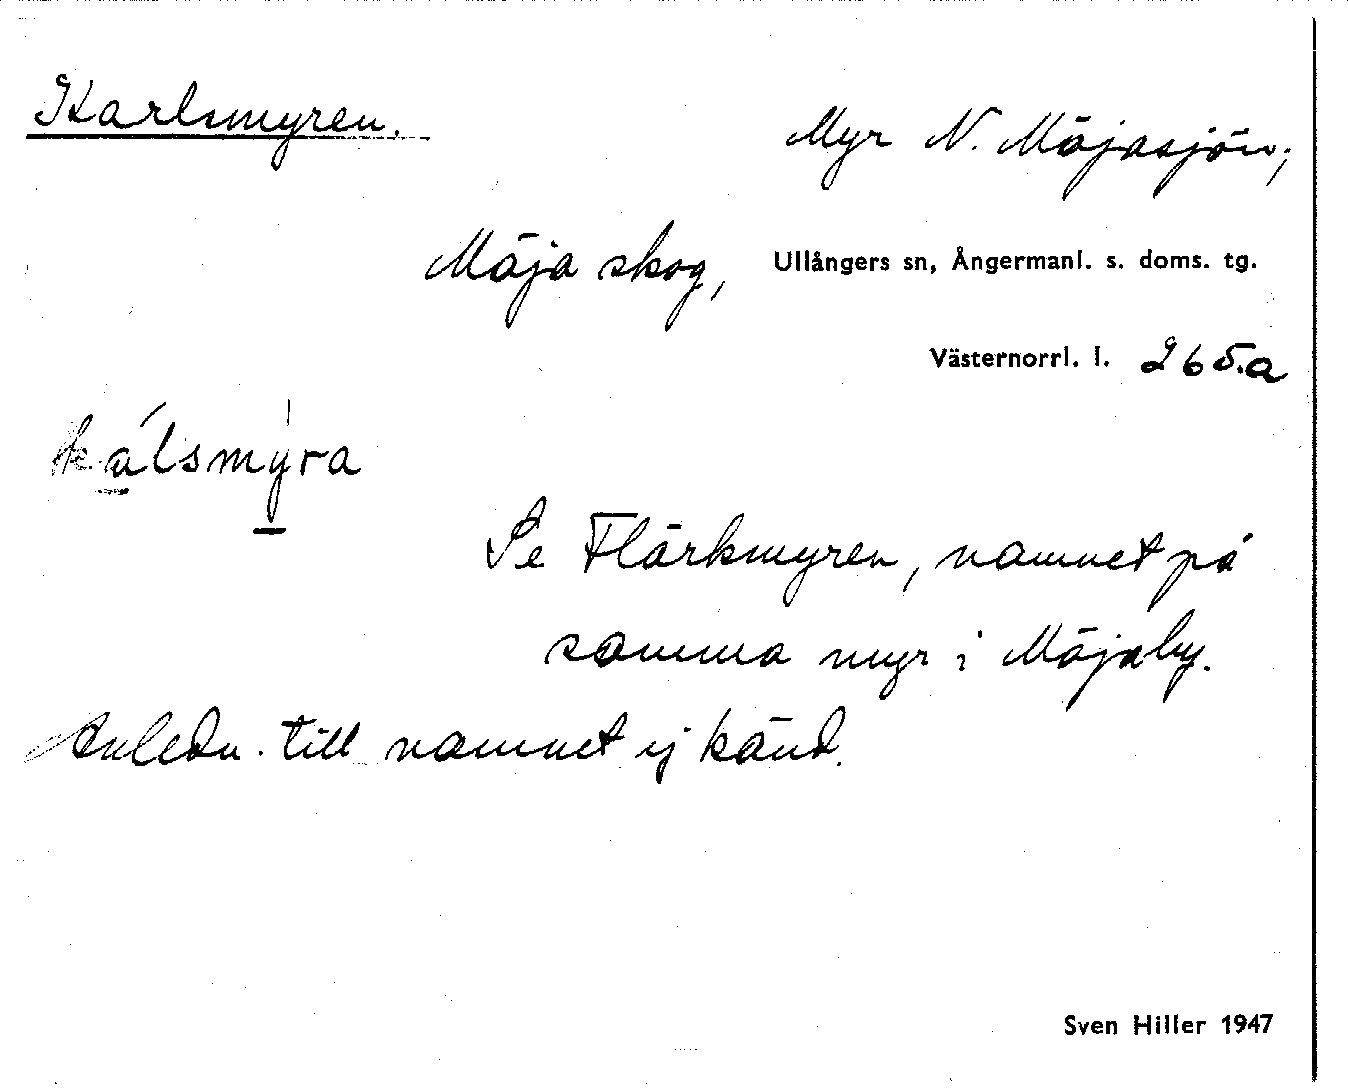 Karlsmyren.
Myr N. Mäjasjön;
Mäja skog, Ullångers sn, Ångermanl. s. doms. tg.
Västernorrl. l. 265.a
kálsmýra
Se Flärkmyren, namnet på
samma myr i Mäjaby.
Anledn. till namnet ej känd.
Sven Hiller 1947